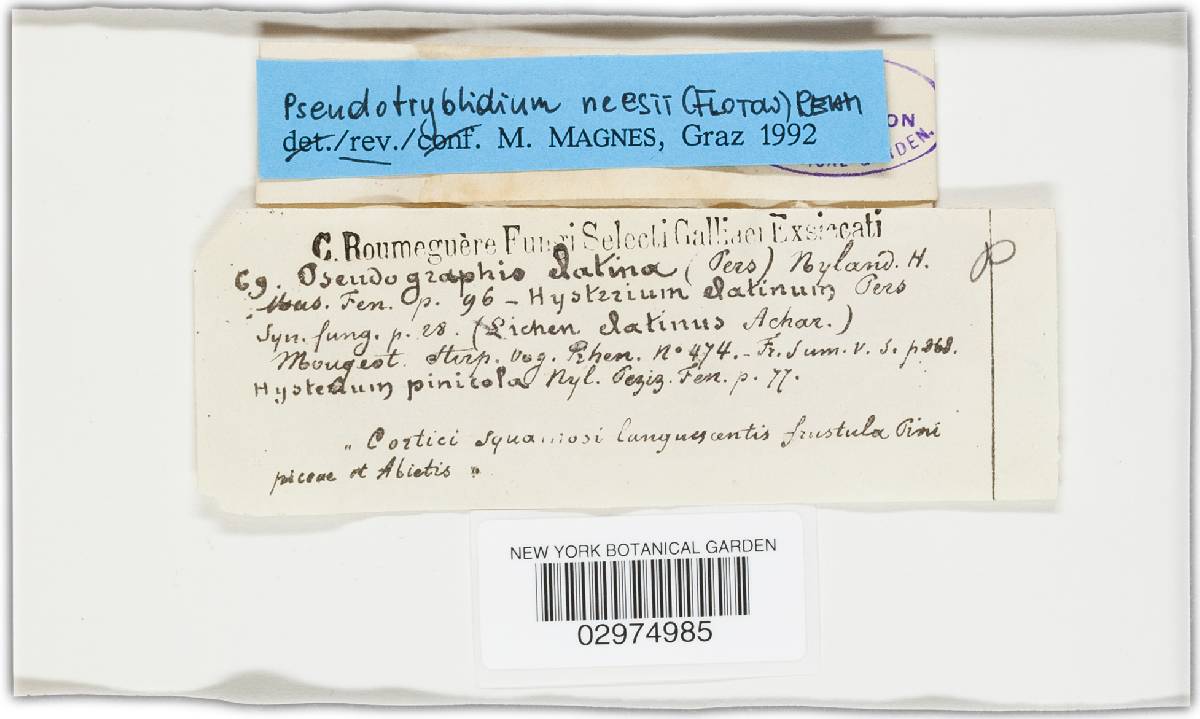 Pseudotryblidium neesii (FLOTOW) REHM
det./rev./conf. M. MAGNES, Graz 1992
ON
DEN.
C. Roumeguère Fungi Selecti Galliaei Exsiccati
69. Pseudographis elatina (Pers) Nyland. H.
Mus. Fen. p. 96 - Hysterium elatinum Pers
Syn. fung. p. 28. (Lichen elatinus Achar.)
Mougeot. Stirp. Vog. Rhen. No 474. - Fr. Sum. v. S. p 368.
Hysterium pinicola Nyl. Peziz. Fen. p. 77.
" Cortici squamosi languescentis frustula Pini
piceae et Abietis "
NEW YORK BOTANICAL GARDEN
02974985